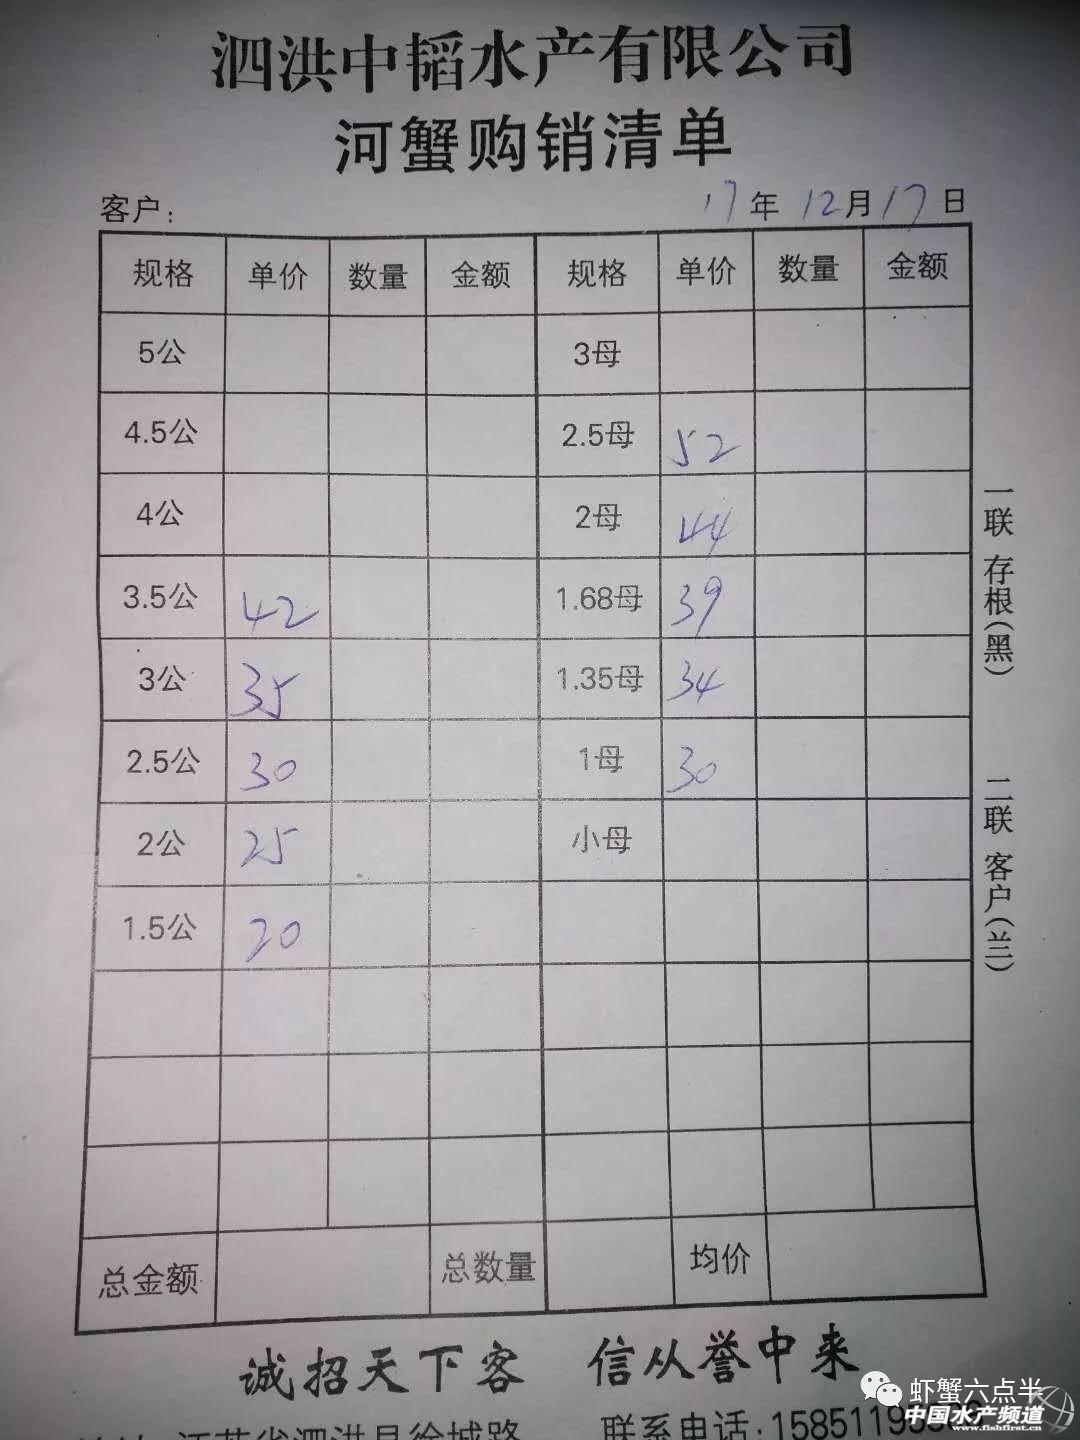 泗洪中韬水产有限公司
河蟹购销清单
客户： 17年 12月17日
规格 单价 数量 金额 规格 单价 数量 金额
5公 3母
4.5公 2.5母 52
4公 2母 44
3.5公 42 1.68母 39
3公 35 1.35母 34
2.5公 30 1母 30
2公 25 小母
1.5公 20
总金额 总数量 均价
一联 存根(黑)
二联 客户(兰)
诚招天下客 信从誉中来
江苏省泗洪县徐城路 联系电话:15851195
虾蟹六点半
中国水产频道
www.fishfirst.cn